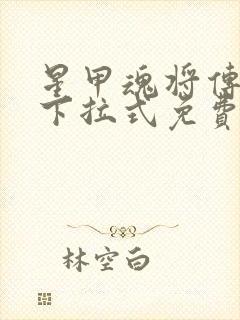 星甲魂将傳
下拉式免費
林空白